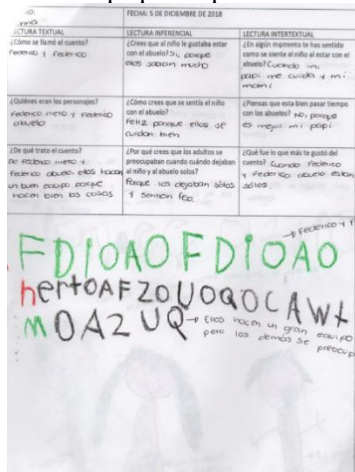 FECHA: 5 DE DICIEMBRE DE 2018
LECTURA TEXTUAL
¿Cómo se llamó el cuento?
Federico y Federico
LECTURA INFERENCIAL
¿Crees que al niño le gustaba estar
con el abuelo? Si, porque
ellos sabian mucho
LECTURA INTERTEXTUAL
¿En algún momento te has sentido
como se siente el niño al estar con el
abuelo? Cuando mi
papi me cuida y mi
mami
¿Quiénes eran los personajes?
Federico nieto y Federico
abuelo
¿Cómo crees que se sentía el niño
con el abuelo?
Feliz porque ellos se
cuidan bien
¿Piensas que esta bien pasar tiempo
con los abuelos? No, porque
es mejor mi papi
¿De qué trato el cuento?
De Federico nieto y
Federico abuelo ellos hacen
un buen equipo porque
hacen bien las cosas
¿Por qué crees que los adultos se
preocupaban cuando cuándo dejaban
al niño y al abuelo solos?
Porque los dejaban solos
y sentian feo.
¿Qué fue lo que más ta gustó del
cuento? Cuando Federico
y Federico abuelo estan
solos.
Federico y F
FDIOAOFDIOAO
hertOAFZOUOQOCAWt
MOAZUQ
Ellos hacen un gran equipo
pero los demás se preocup